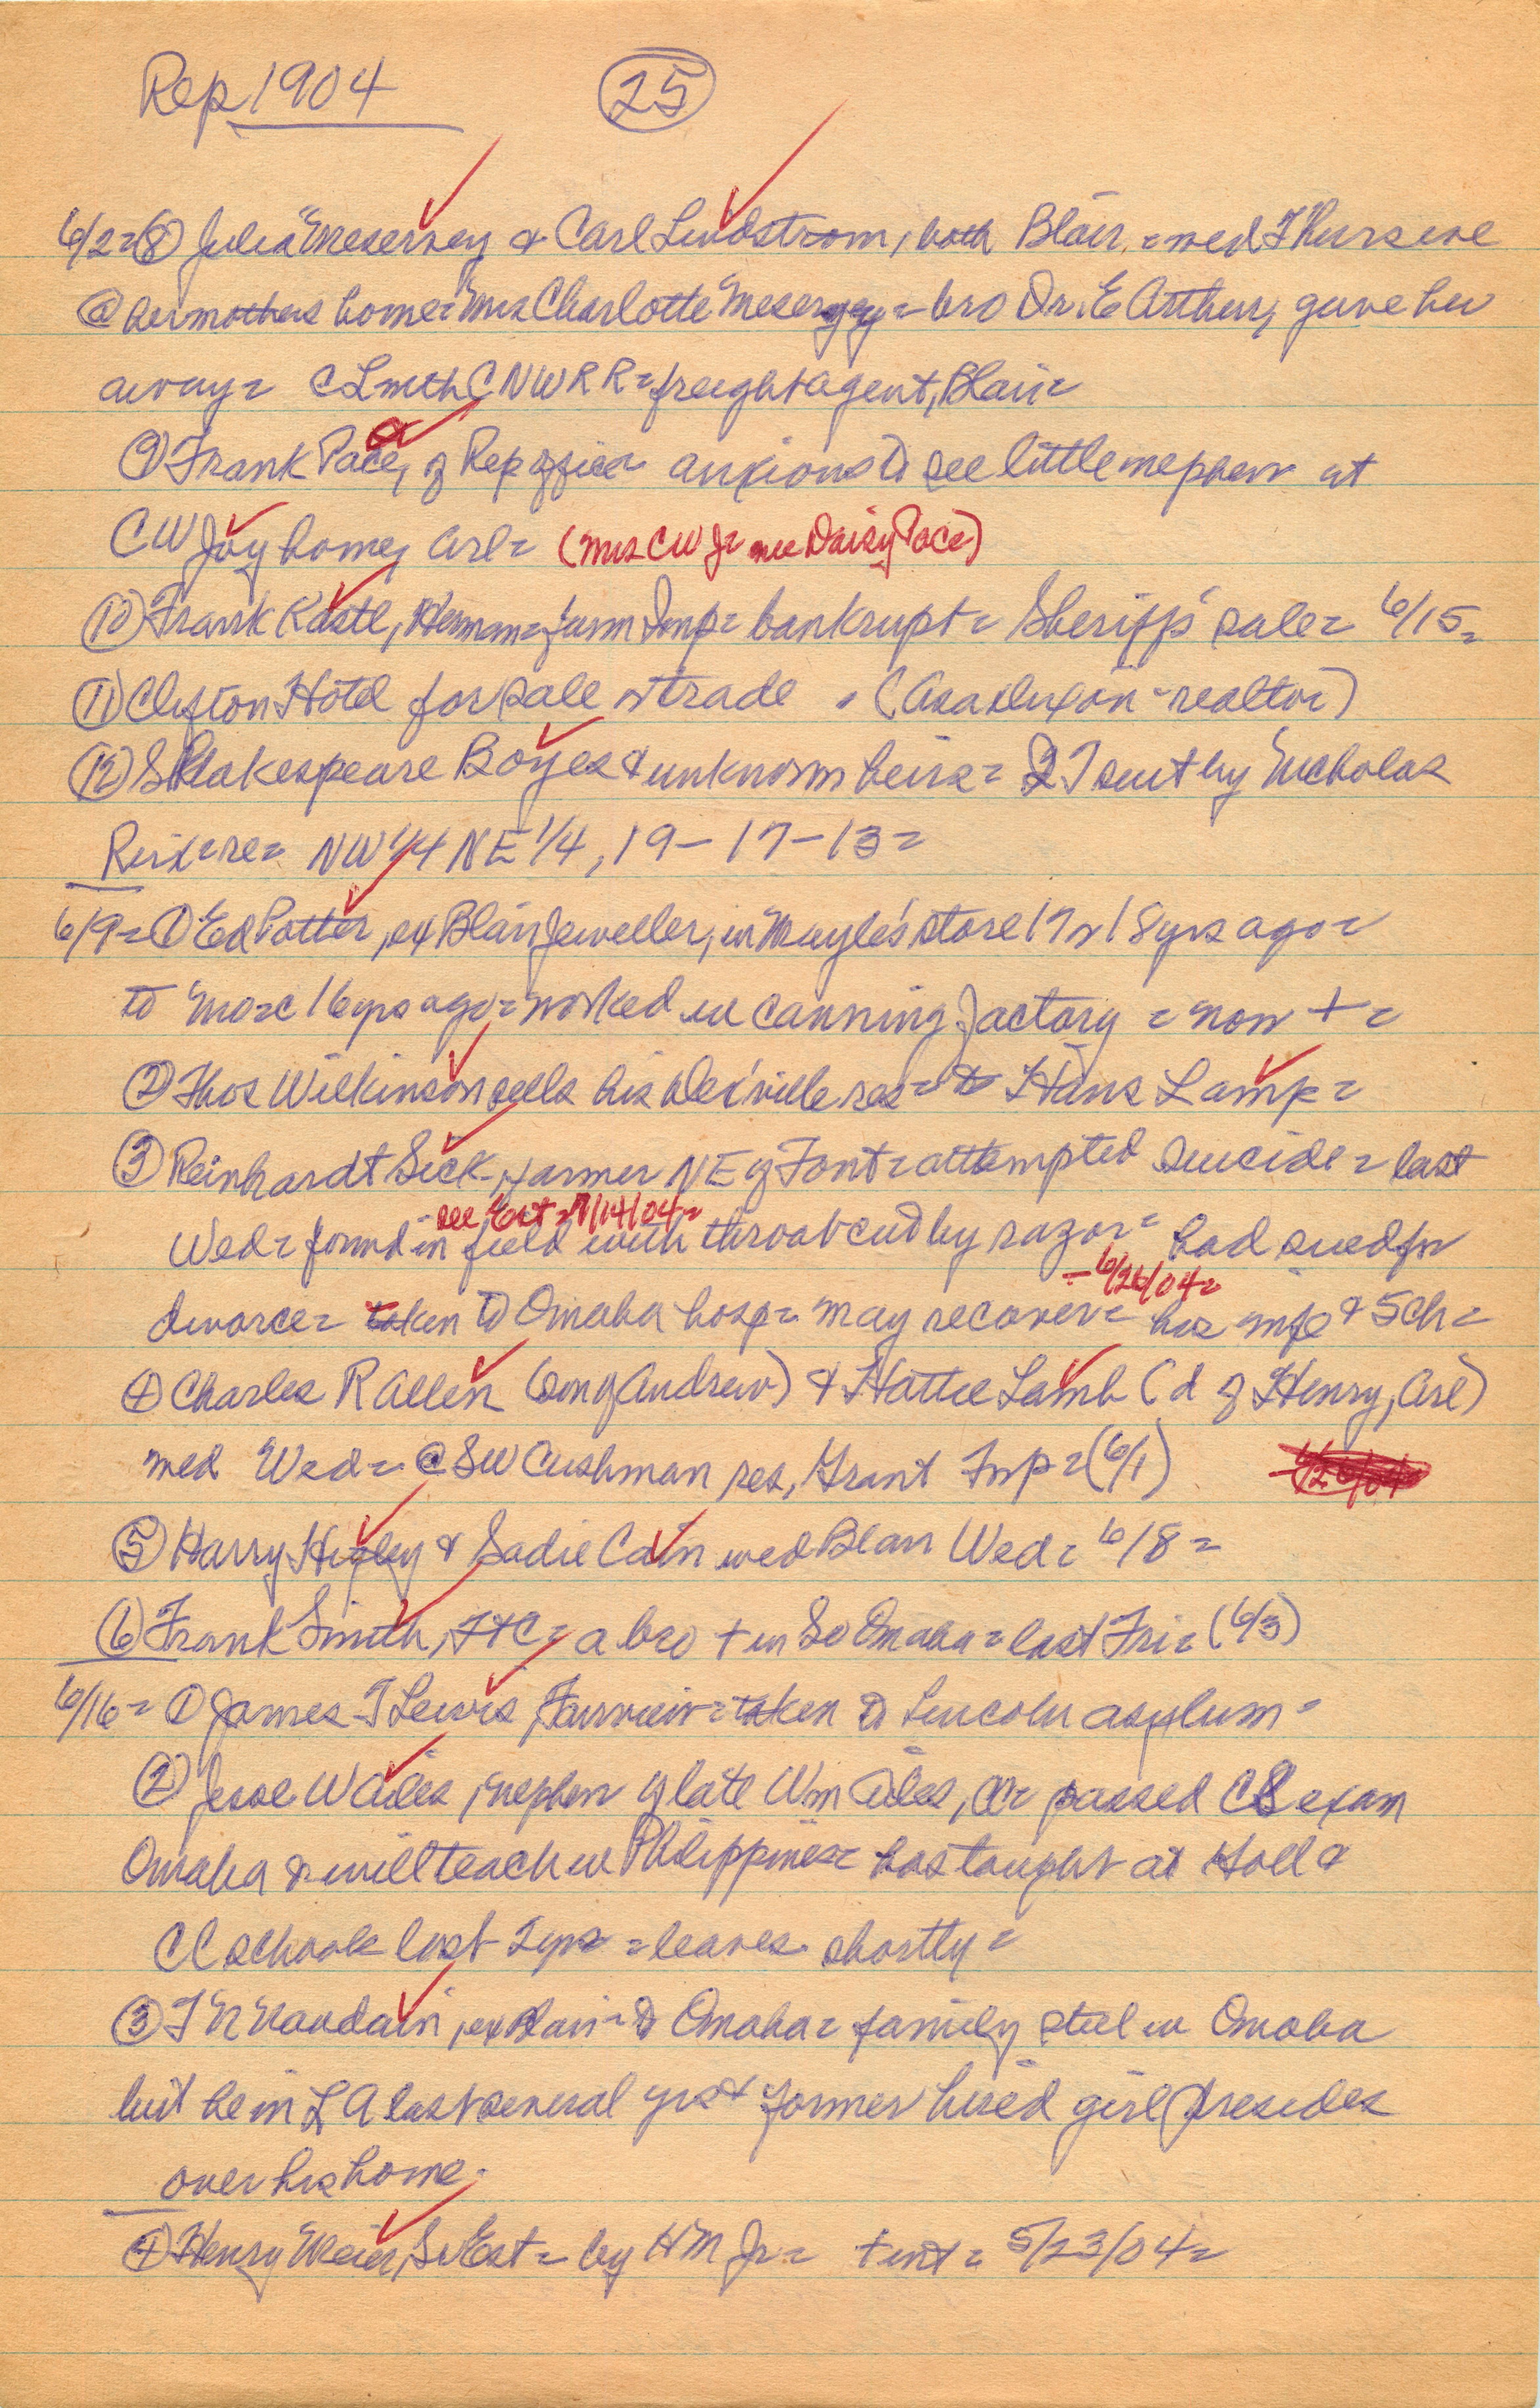 Rep 1904 (25)
6/2= (8) Julia Meservey & Carl Lindstrom, both Blair, = wed Thurs eve
@ her mothers home = Mrs Charlotte Meservey = bro Dr. E Arthur, gave her
away = CL with CNWRR = freight agent, Blair =
(9) Frank Pace, of Rep office anxious to see little nephew at
CW Joy home, Arl = (Mrs CW J = nee Daisy Pace)
(10) Frank Kastl, Herman = farm Imp = bankrupt = Sheriff's sale = 6/15 =
(11) Clifton Hotel for sale or trade = (Asa Dixon - realtor)
(12) Shakespeare Boyes & unknown heirs = QT suit by Nicholas
Rix = re = NW 1/4 NE 1/4, 19 - 17 - 13 =
6/9 = (1) Ed Potter, ex Blair Jeweller, in Mayle's store 17 or 18 yrs ago =
to Mo = c 16 yrs ago = worked in canning factory = now + =
(2) Thos Wilkinson sells his Des'ville res = to Hans Lamp =
(3) Reinhardt Sick, farmer NE of Font = attempted suicide = last
see Ent = 7/14/04 =
Wed = found in field with throat cut by razor = had sued for
- 6/26/04 =
divorce = taken to Omaha hosp = may recover = has wife & 5 ch =
(4) Charles R Allen (son of Andrew) & Hattie Lamb (d of Henry, Arl)
wed Wed = @ SW Cushman res, Grant Twp = (6/1)
(5) Harry Higley & Sadie Cain wed Blair Wed = 6/8 =
(6) Frank Smith, Ft C = a bro + in So Omaha = last Fri = (6/3)
6/16 = (1) James T Lewis, Fairview = taken to Lincoln asylum =
(2) Jesse W Ailes, nephew of late Wm Ailes, = passed CS exam
Omaha & will teach in Philippines = has taught at Holl &
CC schools last 2 yrs = leaves shortly =
(3) T N Naudain, ex Blair = to Omaha = family still in Omaha
but he in LA last several yrs & former hired girl presides
over his home.
(4) Henry Meier, Sr Est = by HM Jr = + int = 5/23/04 =